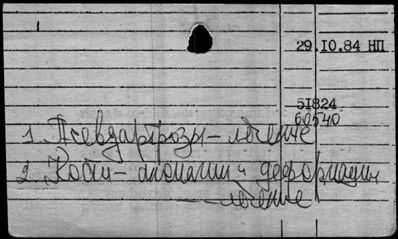 29.10.84 НП
51824
60540
1. Псевдартрозы - лечение
2. Кости - аномалии и деформации
- лечение